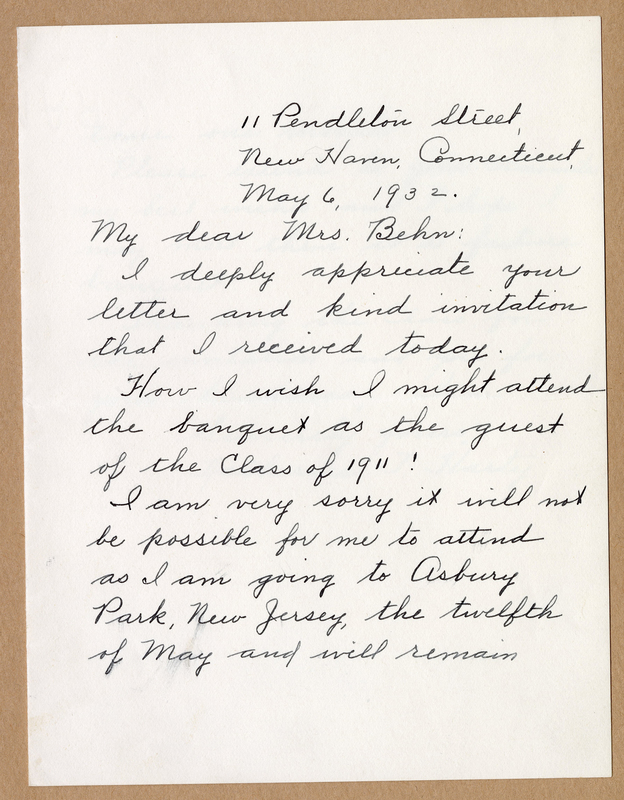 11 Pendleton Street,
New Haven, Connecticut,
May 6, 1932.
My dear Mrs. Behn:
I deeply appreciate your
letter and kind invitation
that I received today.
How I wish I might attend
the banquet as the guest
of the Class of 1911!
I am very sorry it will not
be possible for me to attend
as I am going to Asbury
Park, New Jersey, the twelfth
of May and will remain